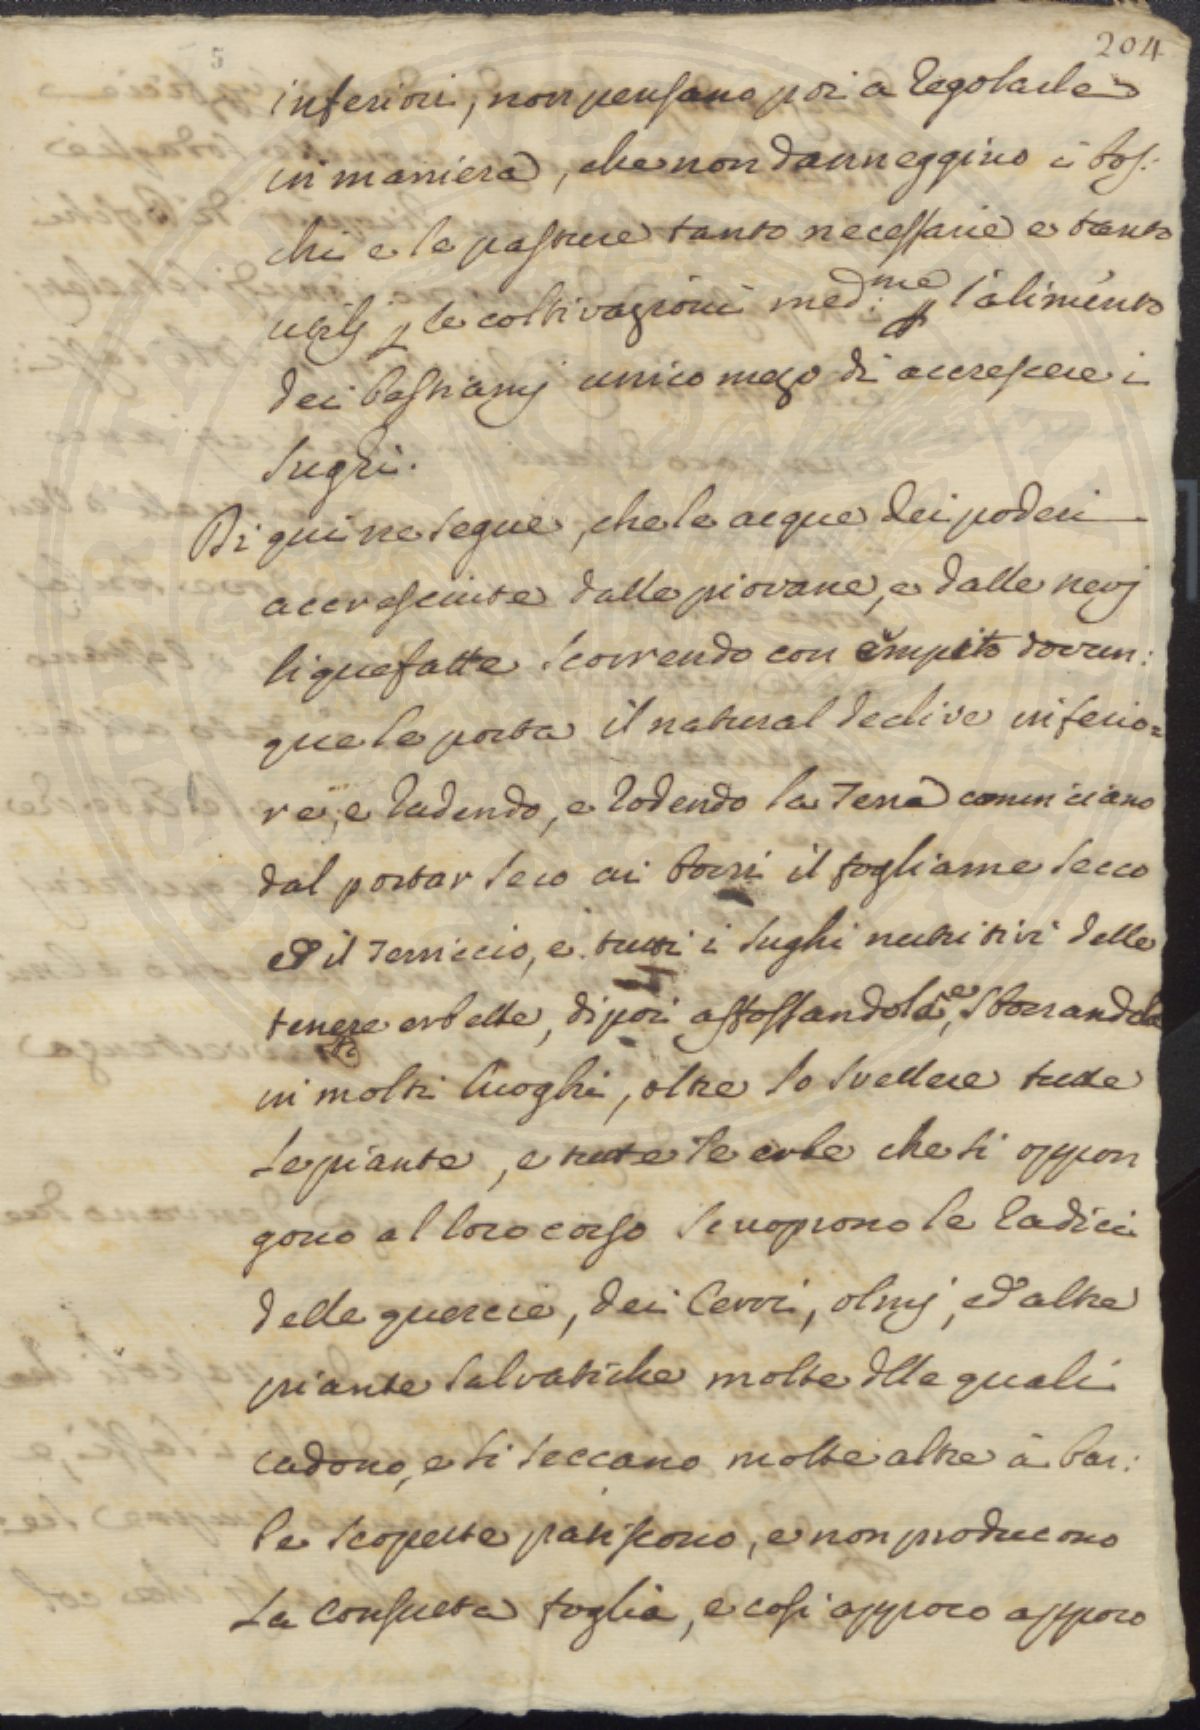 204
5
inferiori, non pensano poi a regolarle
in maniera, che non danneggino i bos:
chi e le pasture tanto necessarie e tanto
utilj p le coltivazioni med:me p l'alimento
dei bestiamj unico mezo di accrescere i
sughi.
Di qui ne segue, che le acque dei poderi
accresciute dalle piovane, e dalle nevj
liquefatte scorrendo con empito dovun:
que le porta il natural declive inferio=
re, e radendo, e rodendo la Terra cominciano
dal portar seco ai borri il fogliame secco
ed il Terriccio, e tutti i sughi nutritivi delle
tenere erbette, dipoi affossandola, e sborrandola
in molti luoghi, oltre lo svellere tutte
le piante, e tutte le erbe che si oppon
gono al loro corso scuoprono le radici
delle quercie, dei Cerri, olmj, ed altre
piante salvatiche molte dlle quali
cadono, e si seccano molte altre à bar:
be scoperte patiscono, e non producono
la consueta foglia, e così appoco appoco